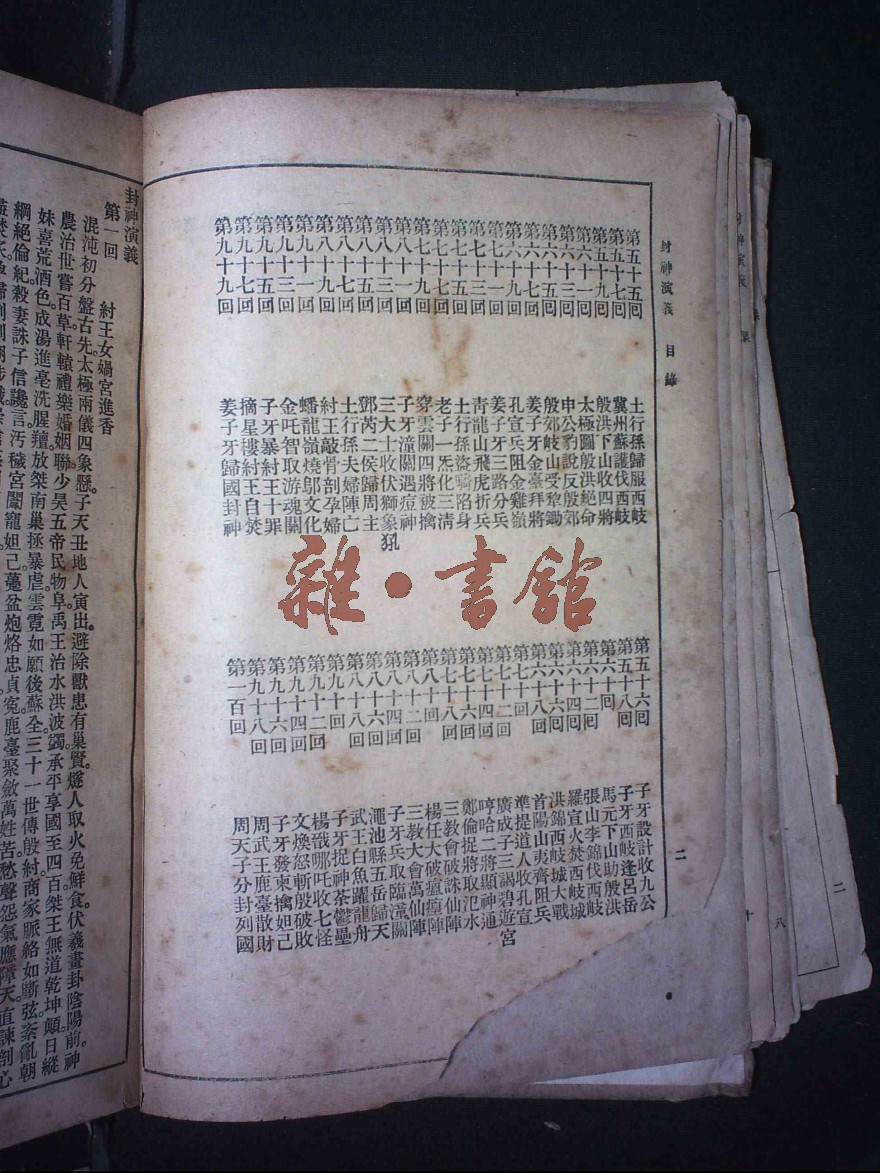 封神演義 目錄
二
第五十五回 土行孫歸服西岐
第五十六回 子牙設計收九公
第五十七回 冀州蘇護伐西岐
第五十八回 子牙西岐逢呂岳
第五十九回 殷洪下山收四將
第六十回 馬元下山助殷洪
第六十一回 太極圖殷洪絕命
第六十二回 張山李錦伐西岐
第六十三回 申公豹說反殷郊
第六十四回 羅宣火焚西岐城
第六十五回 殷郊岐山受犁鋤
第六十六回 洪錦西岐城大戰
第六十七回 姜子牙金臺拜將
第六十八回 首陽山夷齊阻兵
第六十九回 孔宣兵阻金雞嶺
第七十回 準提道人收孔宣
第七十一回 姜子牙三路分兵
第七十二回 廣成子三謁碧遊宮
第七十三回 青龍山飛虎折兵
第七十四回 哼哈二將顯神通
第七十五回 土行孫盜騎陷身
第七十六回 鄭倫捉將取汜水
第七十七回 老子一炁化三清
第七十八回 三教會破誅仙陣
第七十九回 穿雲關四將被擒
第八十回 楊任大破瘟㾮陣
第八十一回 子牙潼關遇痘神
第八十二回 三教大會萬仙陣
第八十三回 三大士收伏獅象犼
第八十四回 子牙兵取臨潼關
第八十五回 鄧芮二侯歸周主
第八十六回 澠池縣五岳歸天
第八十七回 土行孫夫婦陣亡
第八十八回 武王白魚躍龍舟
第八十九回 紂王敲骨剖孕婦
第九十回 子牙捉神荼鬱壘
第九十一回 蟠龍嶺燒鄔文化
第九十二回 楊戩哪吒收七怪
第九十三回 金吒智取游魂關
第九十四回 文煥怒斬殷破敗
第九十五回 子牙暴紂王十罪
第九十六回 子牙發柬擒妲己
第九十七回 摘星樓紂王自焚
第九十八回 周武王鹿臺散財
第九十九回 姜子牙歸國封神
第一百回 周天子分封列國
封神演義
第一回 紂王女媧宮進香
混沌初分盤古先。太極兩儀四象懸。子天丑地人寅出。避除獸患有巢賢。燧人取火免鮮食。伏羲畫卦陰陽前。神
農治世嘗百草。軒轅禮樂婚姻聯。少昊五帝民物阜。禹王治水洪波蠲。承平享國至四百。桀王無道乾坤顛。日縱
妹喜荒酒色。成湯進亳洗腥羶。放桀南巢拯暴虐。雲霓如願後蘇全。三十一世傳殷紂。商家脈絡如斷弦。紊亂朝
綱絕倫紀。殺妻誅子信讒言。污穢宮闈寵妲己。蠆盆炮烙忠貞冤。鹿臺聚斂萬姓苦。愁聲怨氣應障天。直諫剖心
雜·書館
封神演義
二
八
十